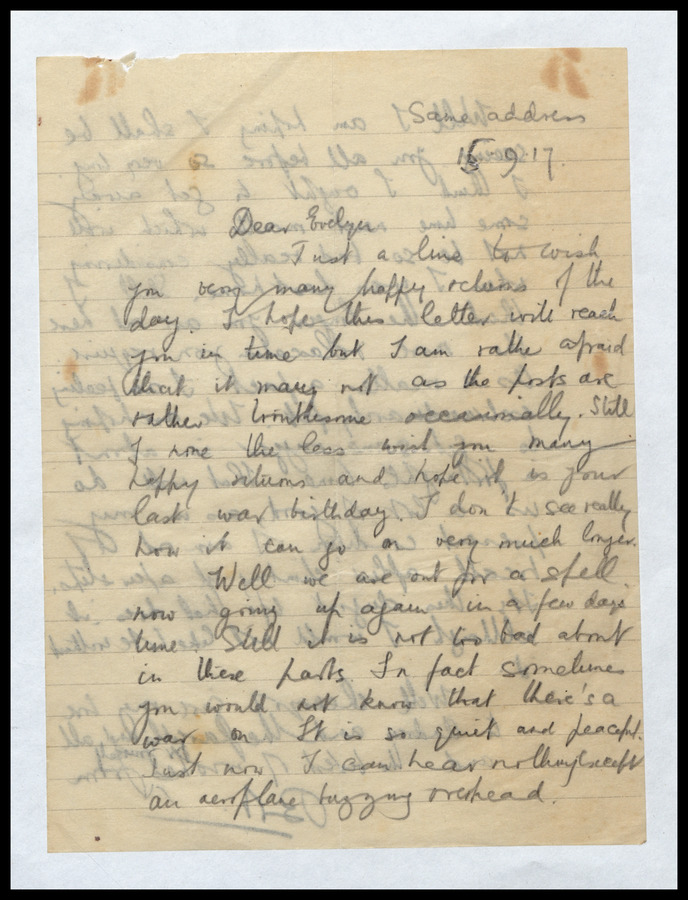 Same address
16-9-17.
Dear Evelyn
Just a line to wish
you very many happy returns of the
day. I hope this letter will reach
you in time but I am rather afraid
that it many not as the posts are
rather troublesome occasionally. Still
I none the less wish you many
happy returns and hope it is your
last war birthday. I don't see really
how it can go on very much longer.
Well we are out for a spell
now going up again in a few days
time. Still it is not too bad about
in these parts. In fact sometimes
you would not know that there's a
war on It is so quiet and peaceful.
Just now I can hear nothing except
an aeroplane buzzing overhead.